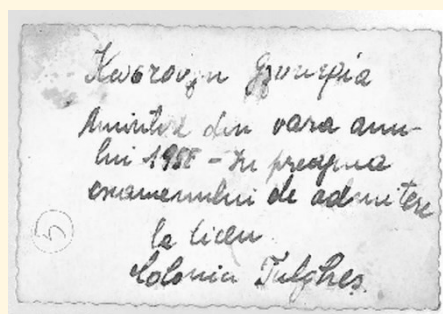 Amintire din vara anu-
lui 1958 - In preajma
examenului de admitere
la liceu
Colonia Tulgheș
5